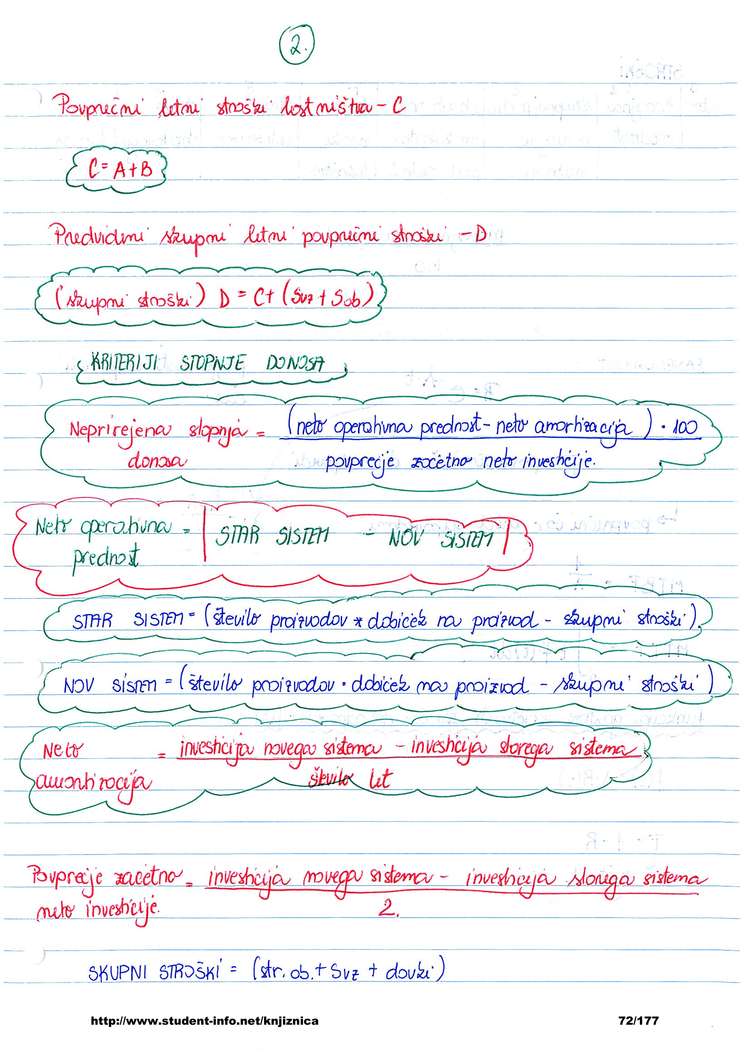 2.
Povprečni letni stroški lastništva - C
C = A + B
Predvideni skupni letni povprečni stroški - D
(skupni stroški) D = C + (Svz + Sob)
KRITERIJI STOPNJE DONOSA
Neprirejena stopnja donosa = (neto operativna prednost - neto amortizacija) · 100
povprečje začetno neto investicije.
Neto operativna prednost = | STAR SISTEM - NOV SISTEM |
STAR SISTEM = (število proizvodov * dobiček na proizvod - skupni stroški).
NOV SISTEM = (število proizvodov · dobiček na proizvod - skupni stroški)
Neto amortizacija = investicija novega sistema - investicija starega sistema
število let
Povprečje začetno neto investicije. = investicija novega sistema - investicija starega sistema
2.
SKUPNI STROŠKI = (str. ob. + Svz + davki)
http://www.student-info.net/knjiznica 72/177